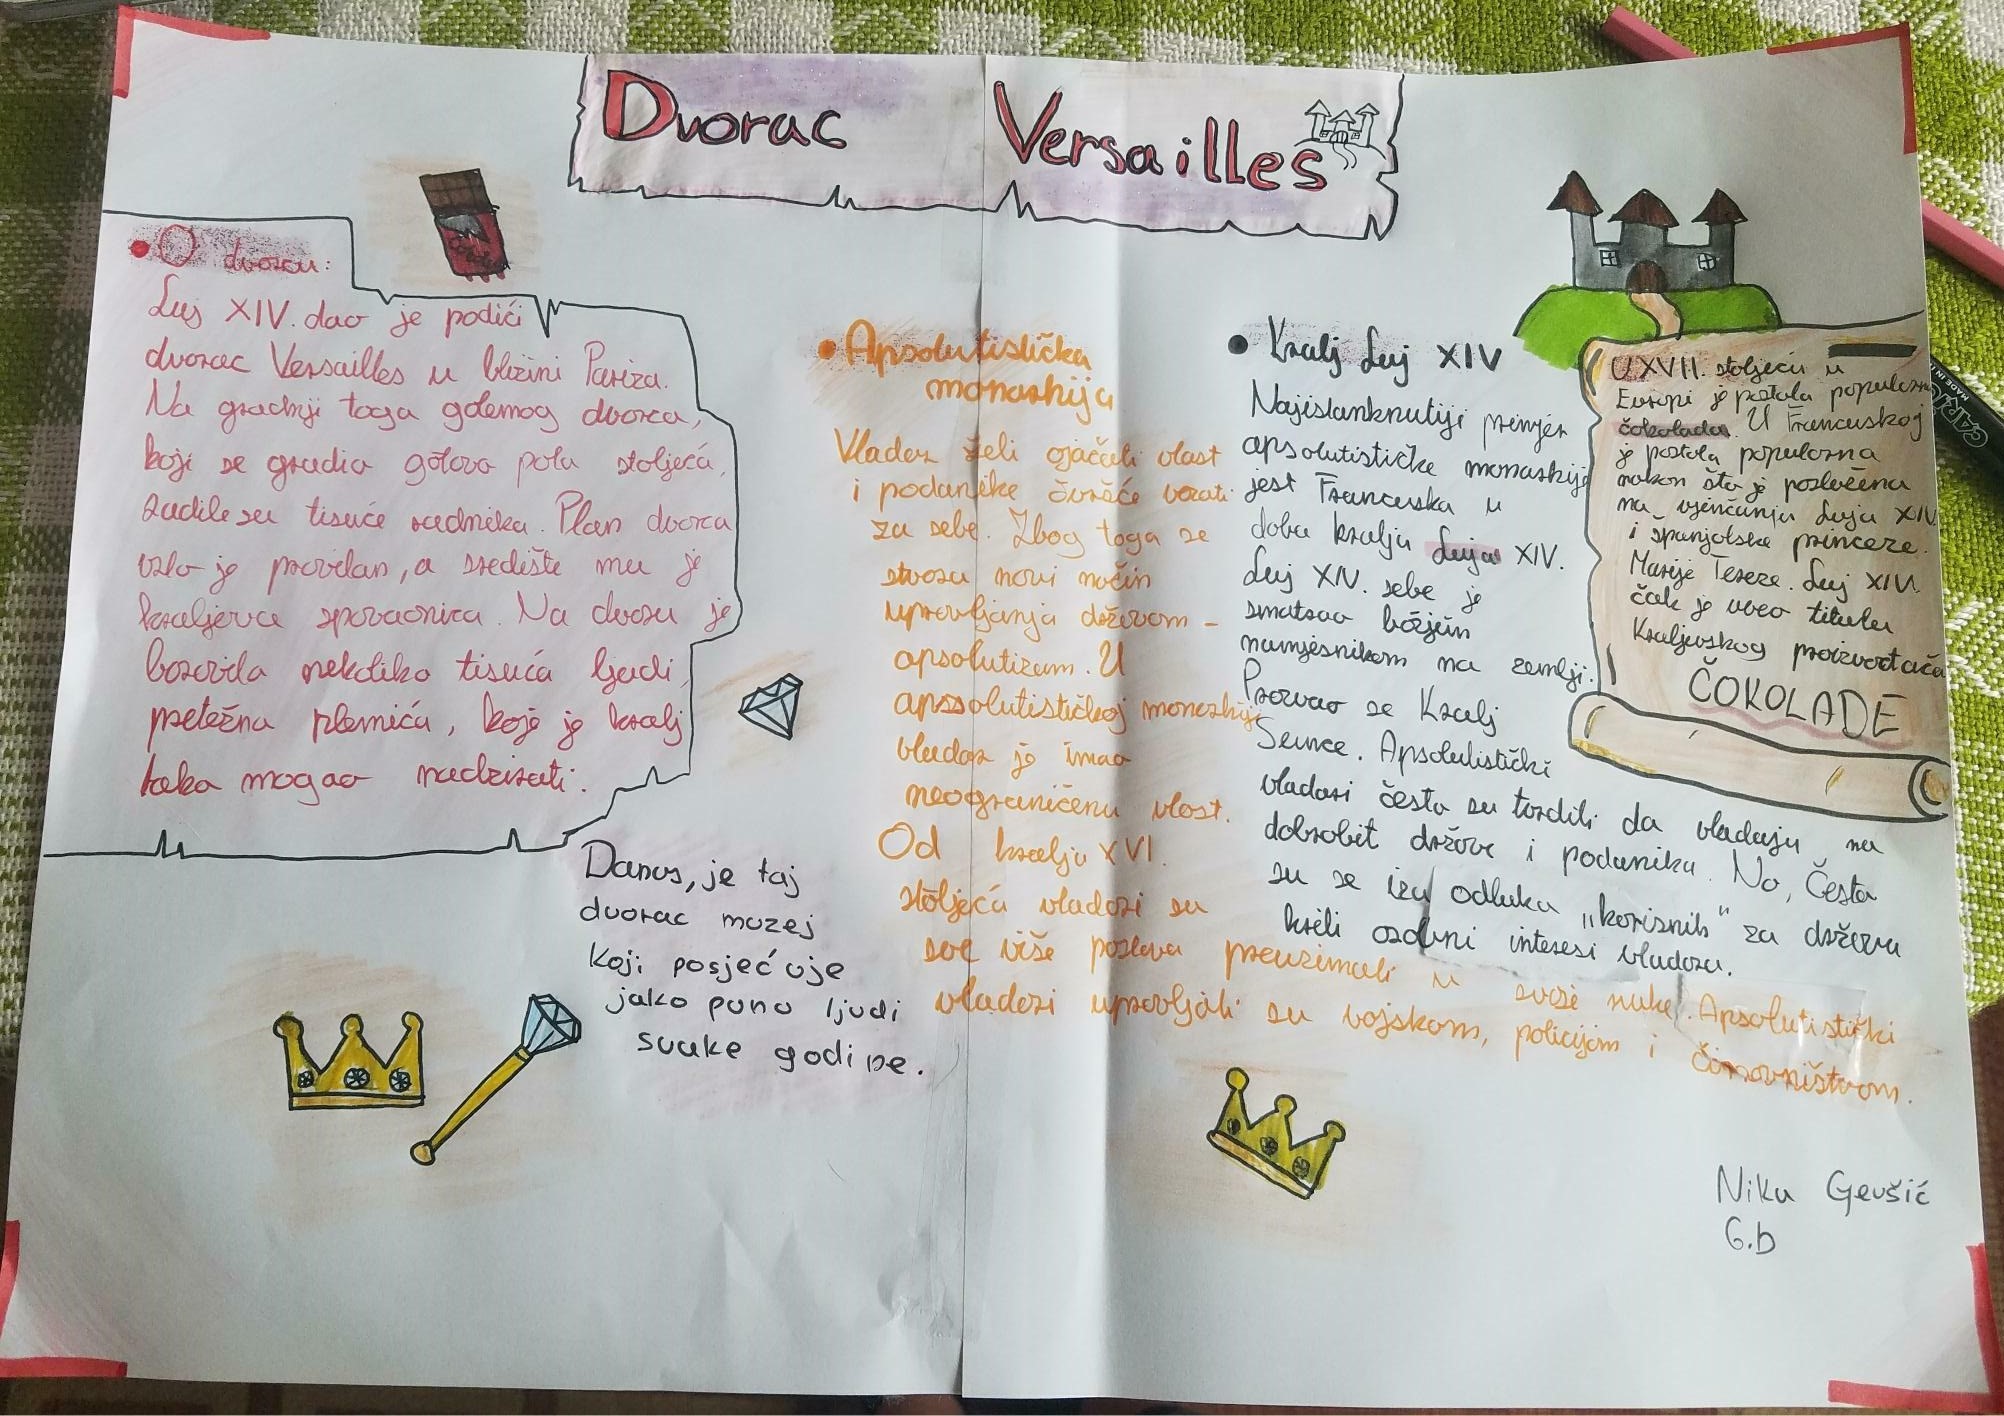 Dvorac Versailles
• O dvorcu:
Luj XIV. dao je podići
dvorac Versailles u blizini Pariza.
Na gradnji toga golemog dvorca,
koji se gradio gotovo pola stoljeća,
radile su tisuće radnika. Plan dvorca
vrlo je pravilan, a središte mu je
kraljevva spavaonica. Na dvoru je
boravila nekoliko tisuća ljudi,
pretežna plemića, koje je kralj
tako mogao nadzirati.
Danas, je taj
dvorac muzej
koji posjećuje
jako puno ljudi
svake godine.
• Apsolutistička
monarhija
Vladar želi ojačati vlast
i podanike čvršće vezati
za sebe. Zbog toga se
stvara novi način
upravljanja državom –
apsolutizam. U
apssolutističkoj monarhiji
vladar je imao
neograničenu vlast.
Od kralja XVI.
stoljeća vladari su
sve više poslova preuzimali u svoje ruke. Apsolutistički
vladari upravljali su vojskom, policijom i činovništvom.
• Kralj Luj XIV
Najistanknutiji primjer
apsolutističke monarhije
jest Francuska u
doba kralja Luja XIV.
Luj XIV. sebe je
smatrao božjim
namjesnikom na zemlji.
Prozvao se Kralj
Sunce. Apsolutistički
vladari često su tvrdili da vladaju na
dobrobit države i podanika. No, često
su se iza odluka „korisnih" za državu
krili osobni interesi vladara.
U XVII. stoljeću u
Europi je postala popularna
čokolada. U Francuskoj
je postala popularna
nakon što je poslužena
na vjenčanju Luja XIV.
i španjolske princeze
Marije Tereze. Luj XIV.
čak je uveo titulu
Kraljevskog proizvođača
ČOKOLADE
Nika Gevšić
6.b
CARIO
MADE IN